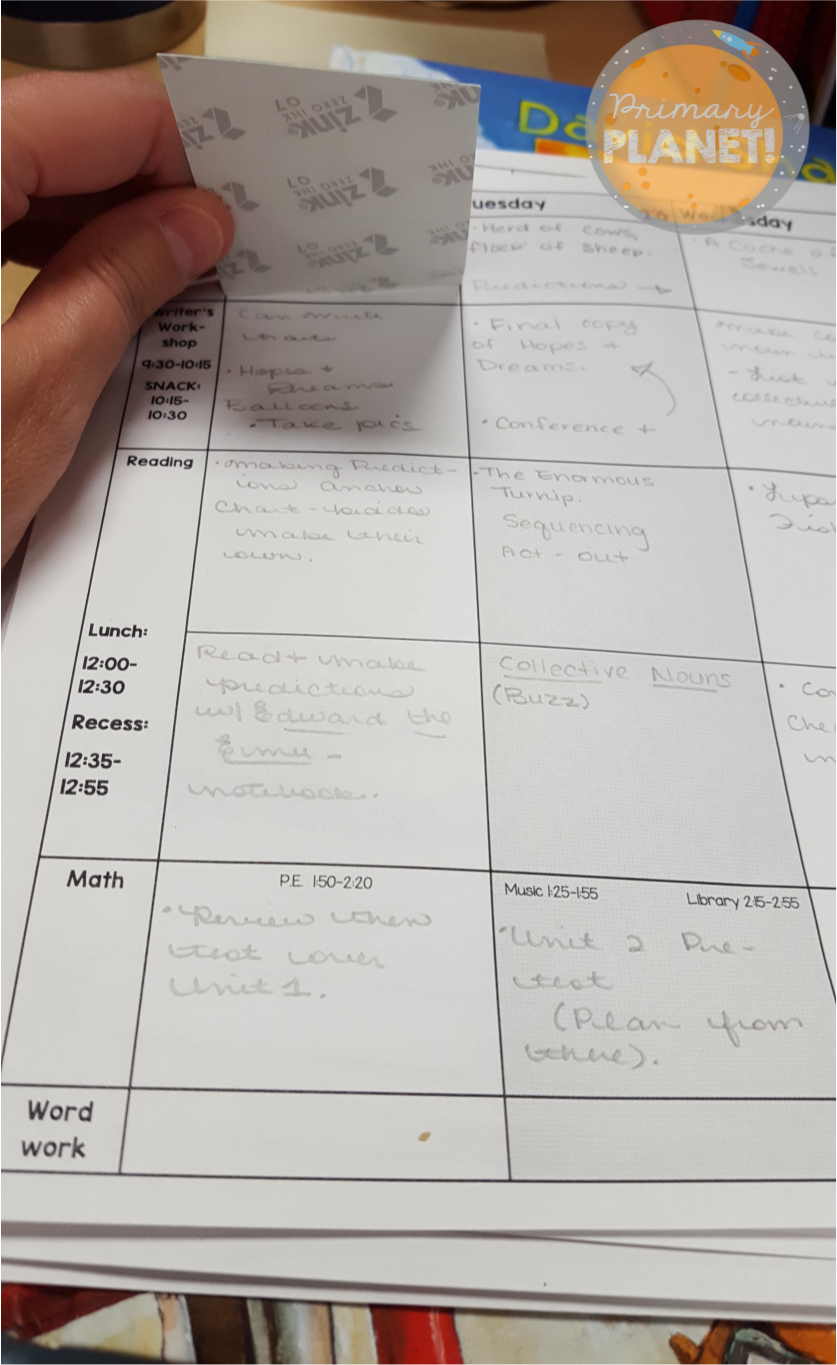 Primary
PLANET!
zink
ZERO INK
uesday
sday
· Herd of cows,
flock of sheep.
Predictions →
A Cache o
Jewels
Writer's
Work-
shop
9:30-10:15
SNACK:
10:15-
10:30
Can write
· Hopes +
Dreams
Balloons
· Take pics
· Final copy
of Hopes +
Dreams.
· Conference +
make co
noun
- list
collective
nouns
Reading
· Making Predict-
ions anchor
Chart - kiddos
make their
own.
· The Enormous
Turnip.
Sequencing
Act - out
Lunch:
12:00-
12:30
Recess:
12:35-
12:55
Read + make
predictions
w/ Edward the
Emu -
notebook.
Collective Nouns
(Buzz)
· Co
Che
Math
P.E. 1:50-2:20
· Review then
test over
Unit 1.
Music 1:25-1:55 Library 2:15-2:55
· Unit 2 Pre-
test
(Plan from
there).
Word
work